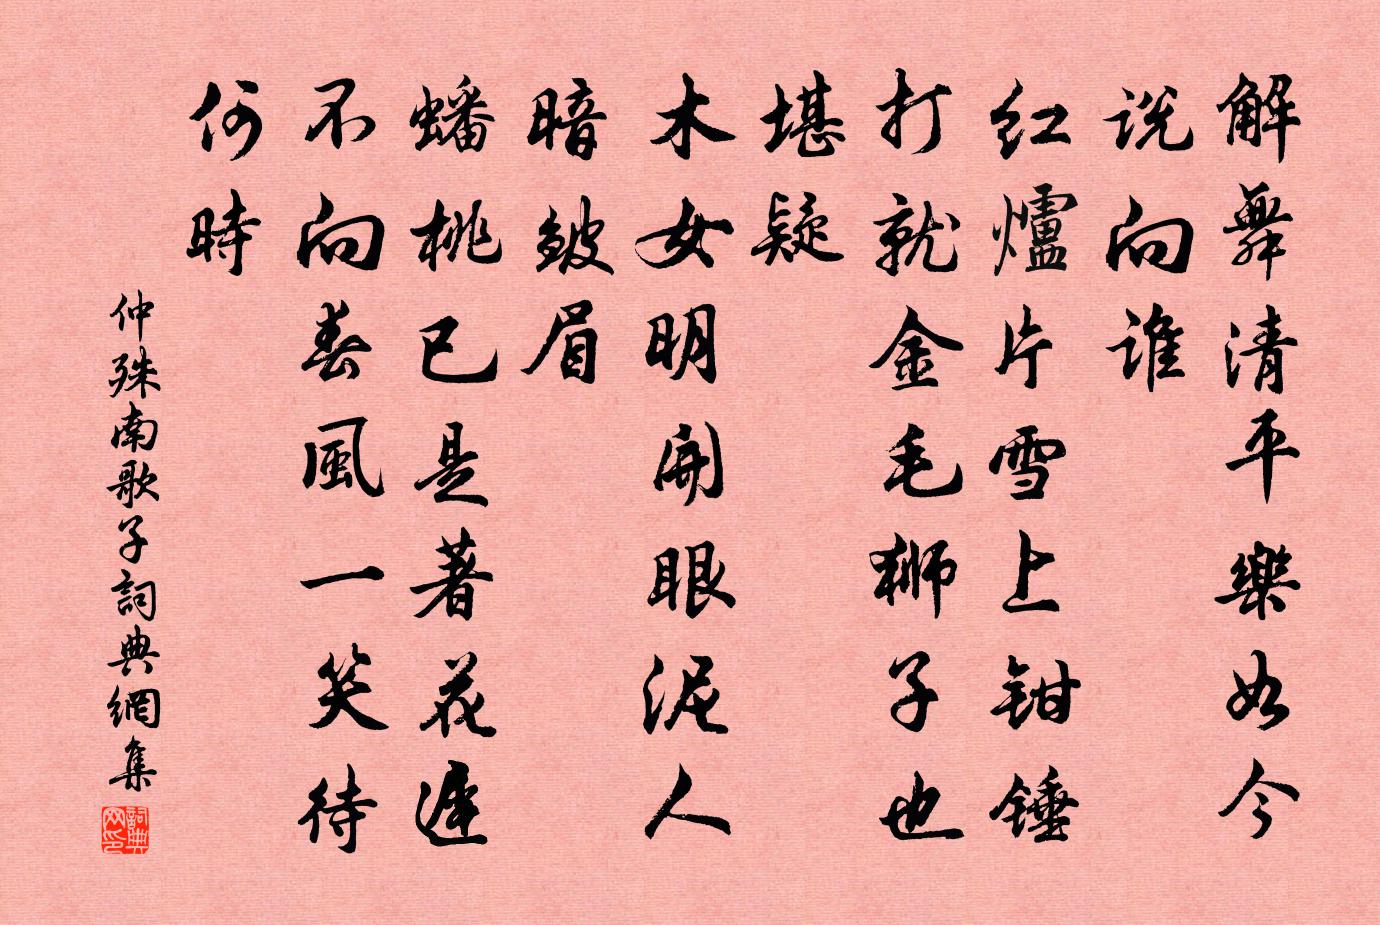 解舞清平樂如今
説向誰
紅爐片雪上鉗錘
打就金毛獅子也
堪疑
木女明開眼泥人
暗皺眉
蟠桃已是著花遲
不向春風一笑待
何時
仲殊南歌子詞典網集
詞典
网印